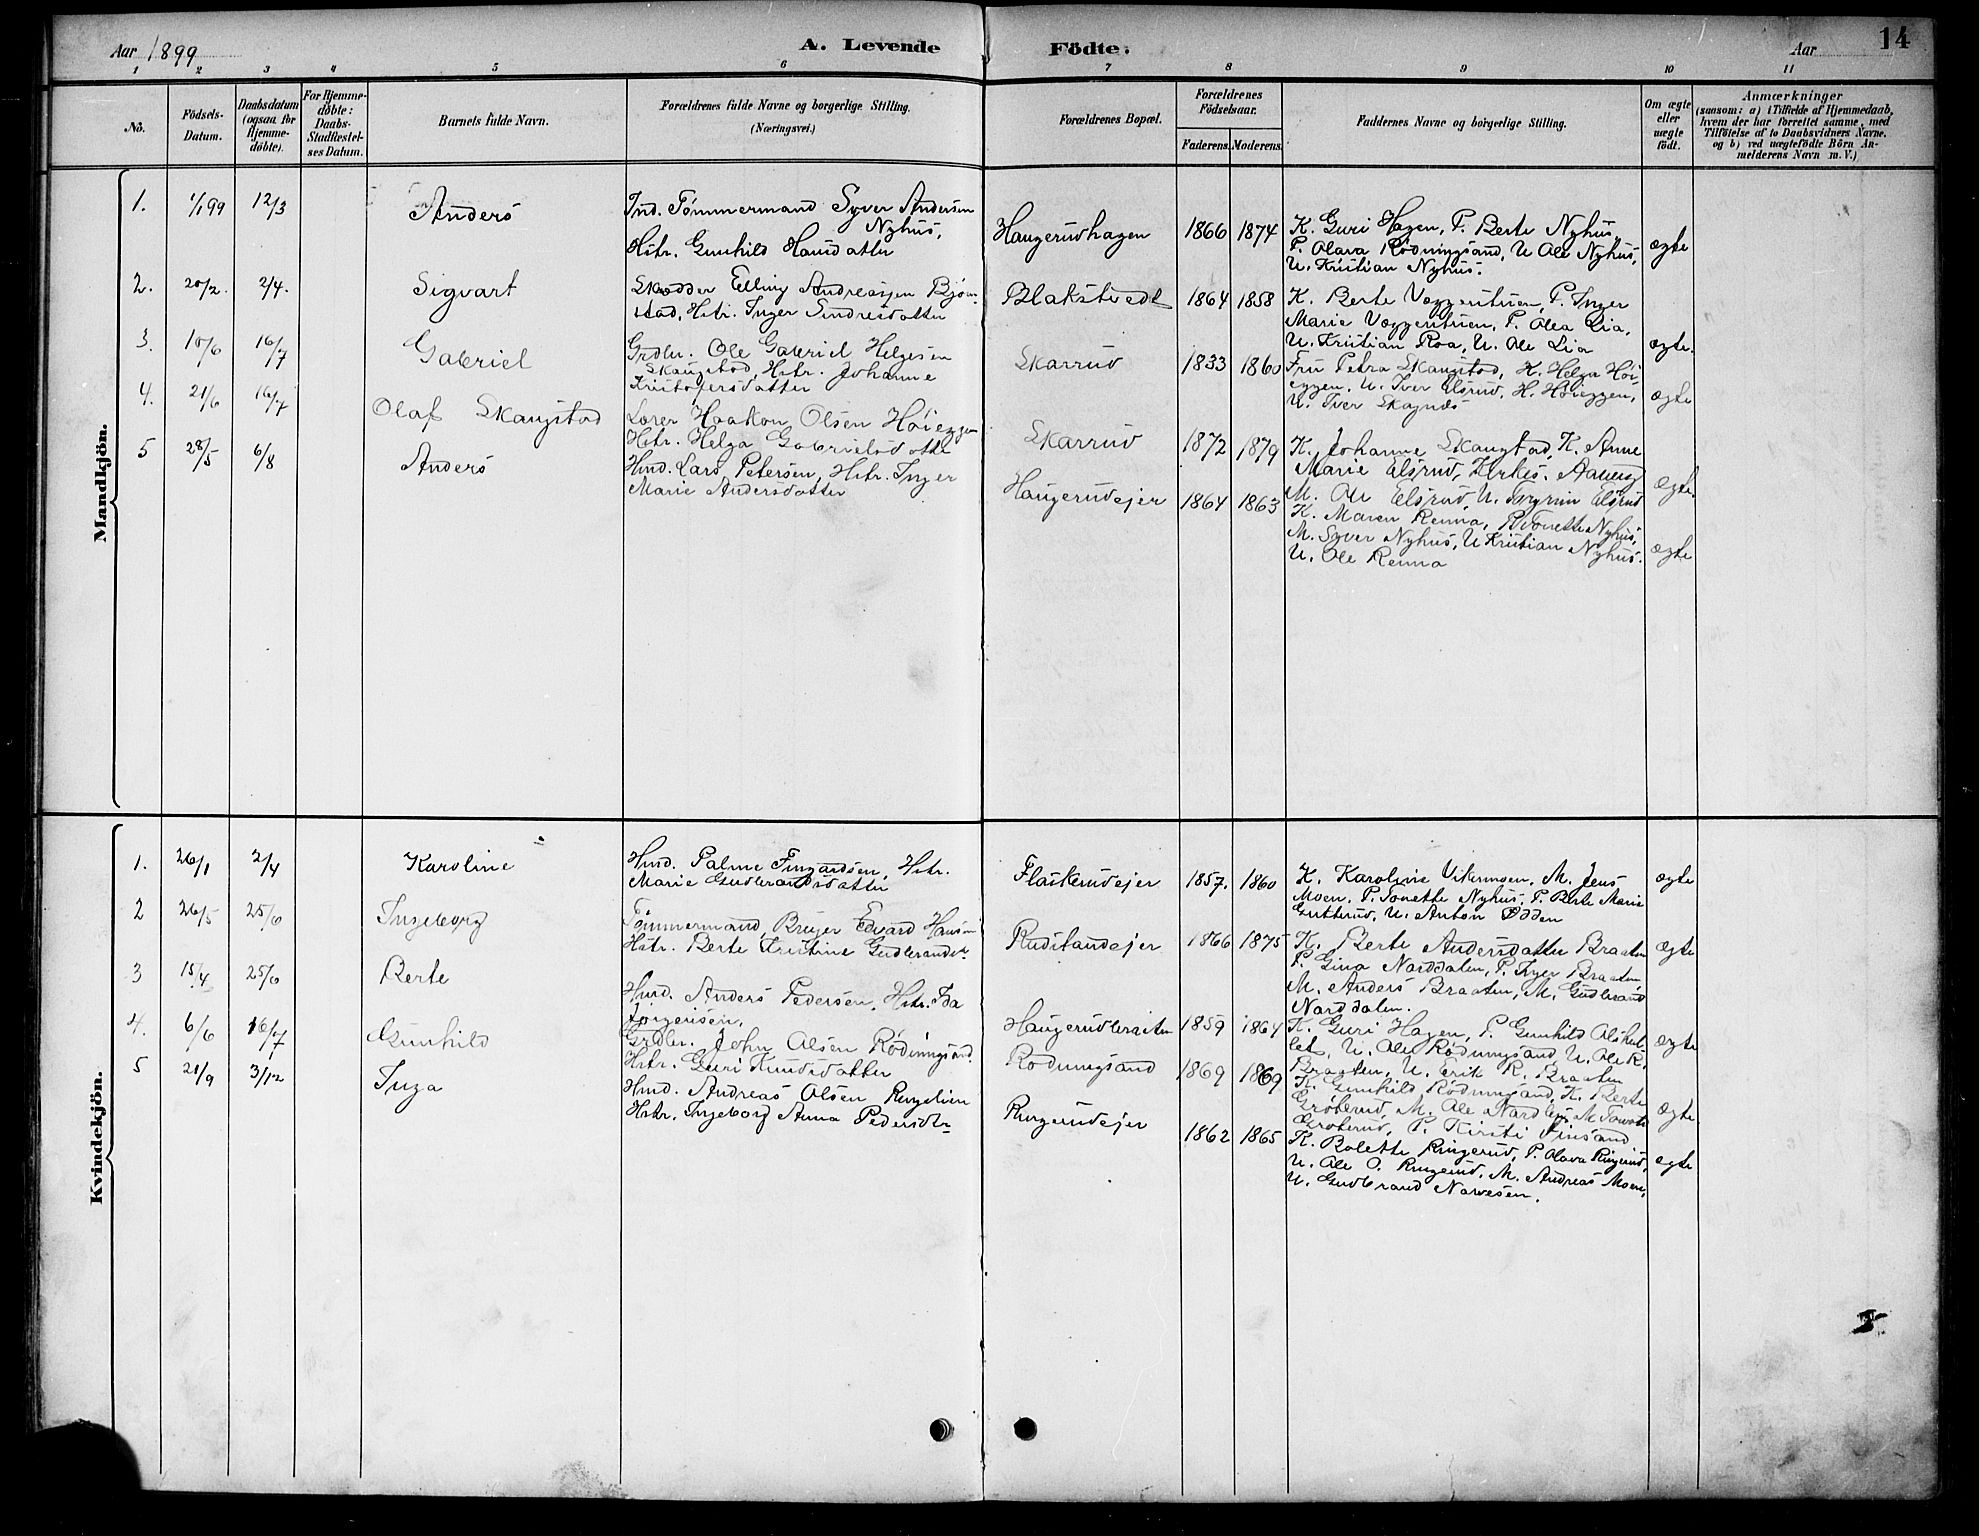 Aar 1899
A. Levende
Födte.
Aar
14
1 2 3 4 5 6 7 8 9 10 11
No.
Födsels-
Datum.
Daabsdatum
(ogsaa for
Hjemme-
döbte).
For Hjemme-
döbte:
Daabs-
Stadfæstel-
ses Datum.
Barnets fulde Navn.
Forældrenes fulde Navne og borgerlige Stilling.
(Næringsvei.)
Forældrenes Bopæl.
Forældrenes
Födselsaar.
Faderens. Moderens.
Faddernes Navne og borgerlige Stilling.
Om ægte
eller
uægte
födt.
Anmærkninger
(saasom: a) i Tilfælde af Hjemmedaab,
hvem der har forrettet samme, med
Tilföielse af to Daabsvidners Navne,
og b) ved uægtefödte Börn An-
melderens Navn m. V.)
Mandkjön.
1. 1/1 99 12/3
Anders
Ind. Tømmermand Syver Andersen
Nyhus,
Hstr. Gunhild Hansdatter
Haugerudhagen
1866 1874
K. Guri Hagen, P. Berte Nyhus,
P. Olava Rødningsand, U Ole Nyhus,
U. Kristian Nyhus.
ægte
2. 20/2. 2/4.
Sigvart
Skrædder Elling Andreassen Bjørn-
stad, Hstr. Inger Sindresdatter
Blakstvedt
1864 1858
K. Berte Væggerstuen, P. Inger
Marie Væggerstuen, P. Olea Lia,
U. Kristian Roa, U. Ole Lia
ægte.
3. 10/6 16/7
Gabriel
Grdbr. Ole Gabriel Helgesen
Skaugstad, Hstr. Johanne
Kristofersdatter
Skarrud
1833 1860
Fru Petra Skaugstad, K. Helga Høi-
eggen, U. Iver Elsrud, H. Høieggen,
U. Iver Skagnæs
ægte
4. 21/6 16/7
Olaf Skaugstad
Lærer Haakon Olsen Høieggen
Hstr. Helga Gabrielsdatte
Skarrud
1872 1879
K. Johanne Skaugstad, K. Anne
Marie Elsrud, Kirkes. Aanerud
M. Ole Elsrud, U. Torgrim Elsrud
ægte.
5 28/5 6/8
Anders
Hmd. Lars Petersen, Hstr. Inger
Marie Andersdatter
Haugerudejer
1864 1863
K. Maren Renna, P. Tonette Nyhus,
M. Syver Nyhus, U Kristian Nyhus.
U. Ole Renna
ægte
Kvindekjön.
1. 26/1 2/4
Karoline
Hmd. Palme Fingardsen, Hstr.
Marie Gudbrandsdatter
Flaskerudejer
1857. 1860
K. Karoline Vikermoen, M. Jens
Moen, P. Tonette Nyhus, P. Berte Marie
Gutterud, U. Anton Odden
ægte
2 26/5 25/6
Ingeborg
Tømmermand, Bruger Edvard Hansen
Hstr. Berte Kristine Gudbrandsdr
Rudstandejer
1866 1875
K. Berte Andersdatter Braaten
P. Gina Narddalen, P. Inger Braaten,
M. Anders Braaten, M. Gudbrand
Narddalen.
ægte
3 15/4 25/6
Berte
Hmd. Anders Pedersen, Hstr. Ida
Jørgensen,
Haugerudbraaten
1859 1864
K. Guri Hagen, P. Gunhild Olshul-
let, U. Ole Rødningsand U. Ole R.
Braaten, U. Erik R. Braaten
ægte
4. 6/6 16/7
Gunhild
Grdbr. John Olsen Rødningsand.
Hstr. Guri Knudsdatter
Rødningsand
1869 1869
K. Gunhild Rødningsand, K. Berte
Grøterud, M. Ole Nardby, M
Grøterud, P. Kirsti Finsand
ægte
5 21/9 3/12
Inga
Hmd. Andreas Olsen Ringelien
Hstr. Ingeborg Anna Pedersdtr
Ringerudejer
1862 1865
K. Bolette Ringerud, P. Olava Ringerud,
U. Ole O. Ringerud, M. Andreas Moen,
U. Gudbrand Narvesen.
ægte